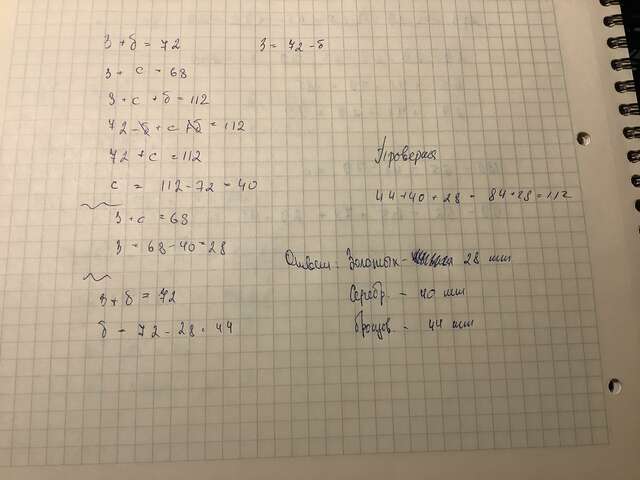 з + б = 72
з = 72 - б
з + с = 68
з + с + б = 112
72 - б + с + б = 112
72 + с = 112
с = 112 - 72 = 40
з + с = 68
з = 68 - 40 = 28
з + б = 72
б = 72 - 28 = 44
Проверка
44 + 40 + 28 = 84 + 28 = 112
Ответ: Золотых - 28 шт
Серебр. - 40 шт
бронзов. - 44 шт